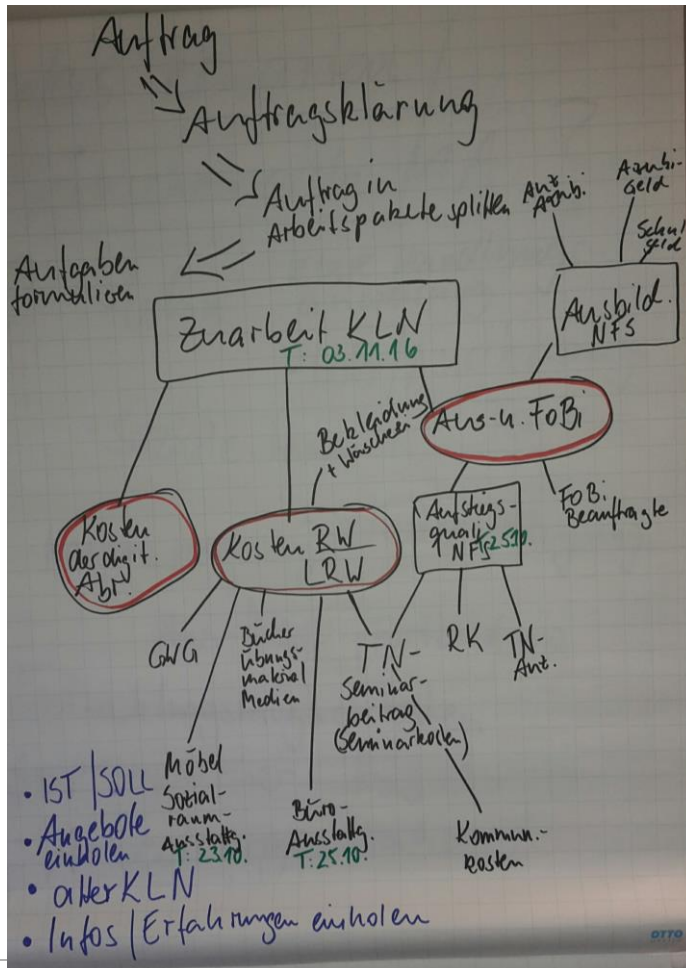 Auftrag
Auftragsklärung
Auftrag in
Arbeitspakete splitten
Aufgaben
formulieren
Ant.
Azubi.
Azubi-
Geld
Schul
geld
Ausbild.
NFS
Zuarbeit KLN
T: 03.11.16
Bekleidung
+ Wäscherei
Aus- u. FoBi
Kosten
der digit.
Abr.
Kosten RW
LRW
Aufstiegs-
quali
NFS T:25.10.
FoBi
Beauftragte
GWG
Bücher
Übungs-
material
Medien
TN-
Seminar-
beitrag
(Seminarkosten)
RK
TN-
Ant.
Möbel
Sozial-
raum-
Ausstattg.
T: 23.10.
Büro-
Ausstattg.
T: 25.10.
Kommun.-
kosten
• IST / SOLL
• Angebote
einholen
• alter KLN
• Infos / Erfahrungen einholen
OTTO